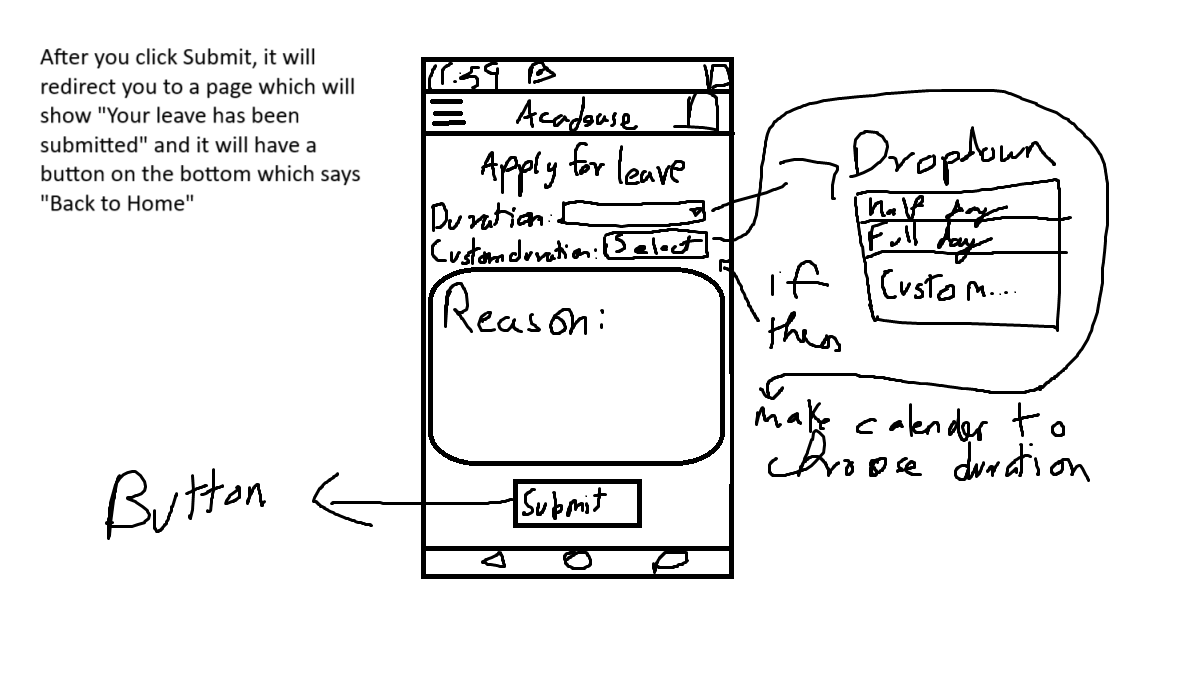 After you click Submit, it will
redirect you to a page which will
show "Your leave has been
submitted" and it will have a
button on the bottom which says
"Back to Home"
11:59
Acadsuse
Apply for leave
Duration:
Custom duration: Select
Reason:
Submit
Button
Dropdown
Half day
Full day
Custom....
if
then
make calender to
choose duration